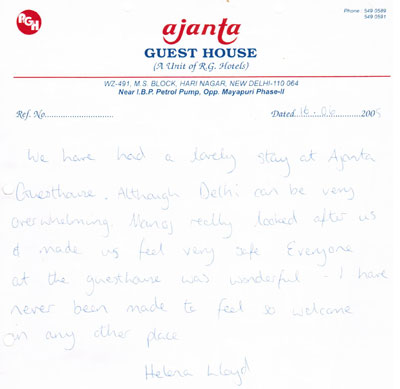 RGH
Phone : 549 0589
549 0591
ajanta
GUEST HOUSE
(A Unit of R.G. Hotels)
WZ-491, M.S. BLOCK, HARI NAGAR, NEW DELHI-110 064
Near I.B.P. Petrol Pump, Opp. Mayapuri Phase-II
Ref. No............................ Dated 16.06.2005
We have had a lovely stay at Ajanta
Guesthouse. Although Delhi can be very
overwhelming. Manoj really looked after us
& made us feel very safe Everyone
at the guesthouse was wonderful - I have
never been made to feel so welcome
in any other place
Helena Lloyd